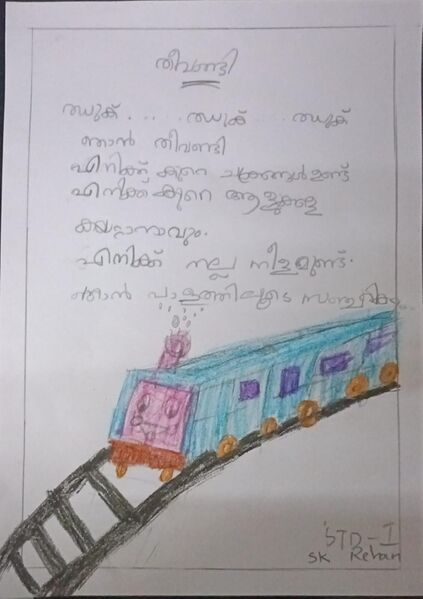 തീവണ്ടി
ഝുക് .... ഝുക് .... ഝുക്
ഞാൻ തീവണ്ടി
എനിക്ക് കുറെ ചക്രങ്ങൾ ഉണ്ട്
എനിക്ക് കുറെ ആളുകളെ
കയറ്റാനാവും.
എനിക്ക് നല്ല നീളമുണ്ട്.
ഞാൻ പാളത്തിലൂടെ സഞ്ചരിക്കും.
STD - I
SK Rehan